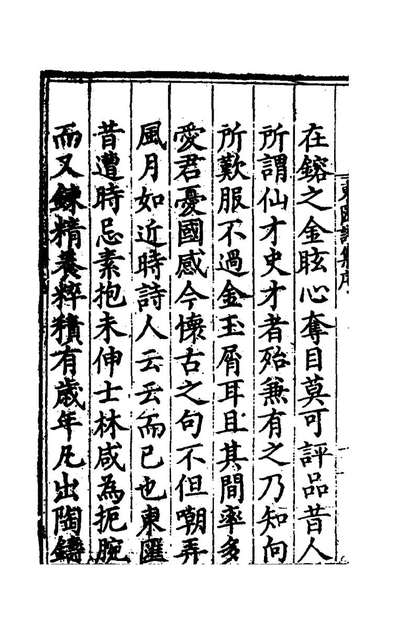 在鎔之金眩心奪目莫可評品昔人
所謂仙才史才者殆兼有之乃知向
所歎服不過金玉屑耳且其間率多
愛君憂國感今懷古之句不但嘲弄
風月如近時詩人云云而已也東匯
昔遭時忌素抱未伸士林咸為扼腕
而又鍊精養粹積有歲年凡出陶鑄